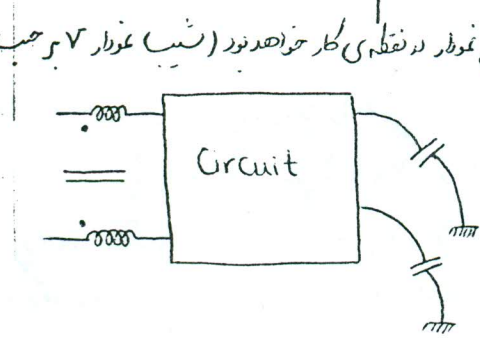 نمودار در نقطه‌ی کار خواهد بود (شیب) نمودار V بر حسب
Circuit